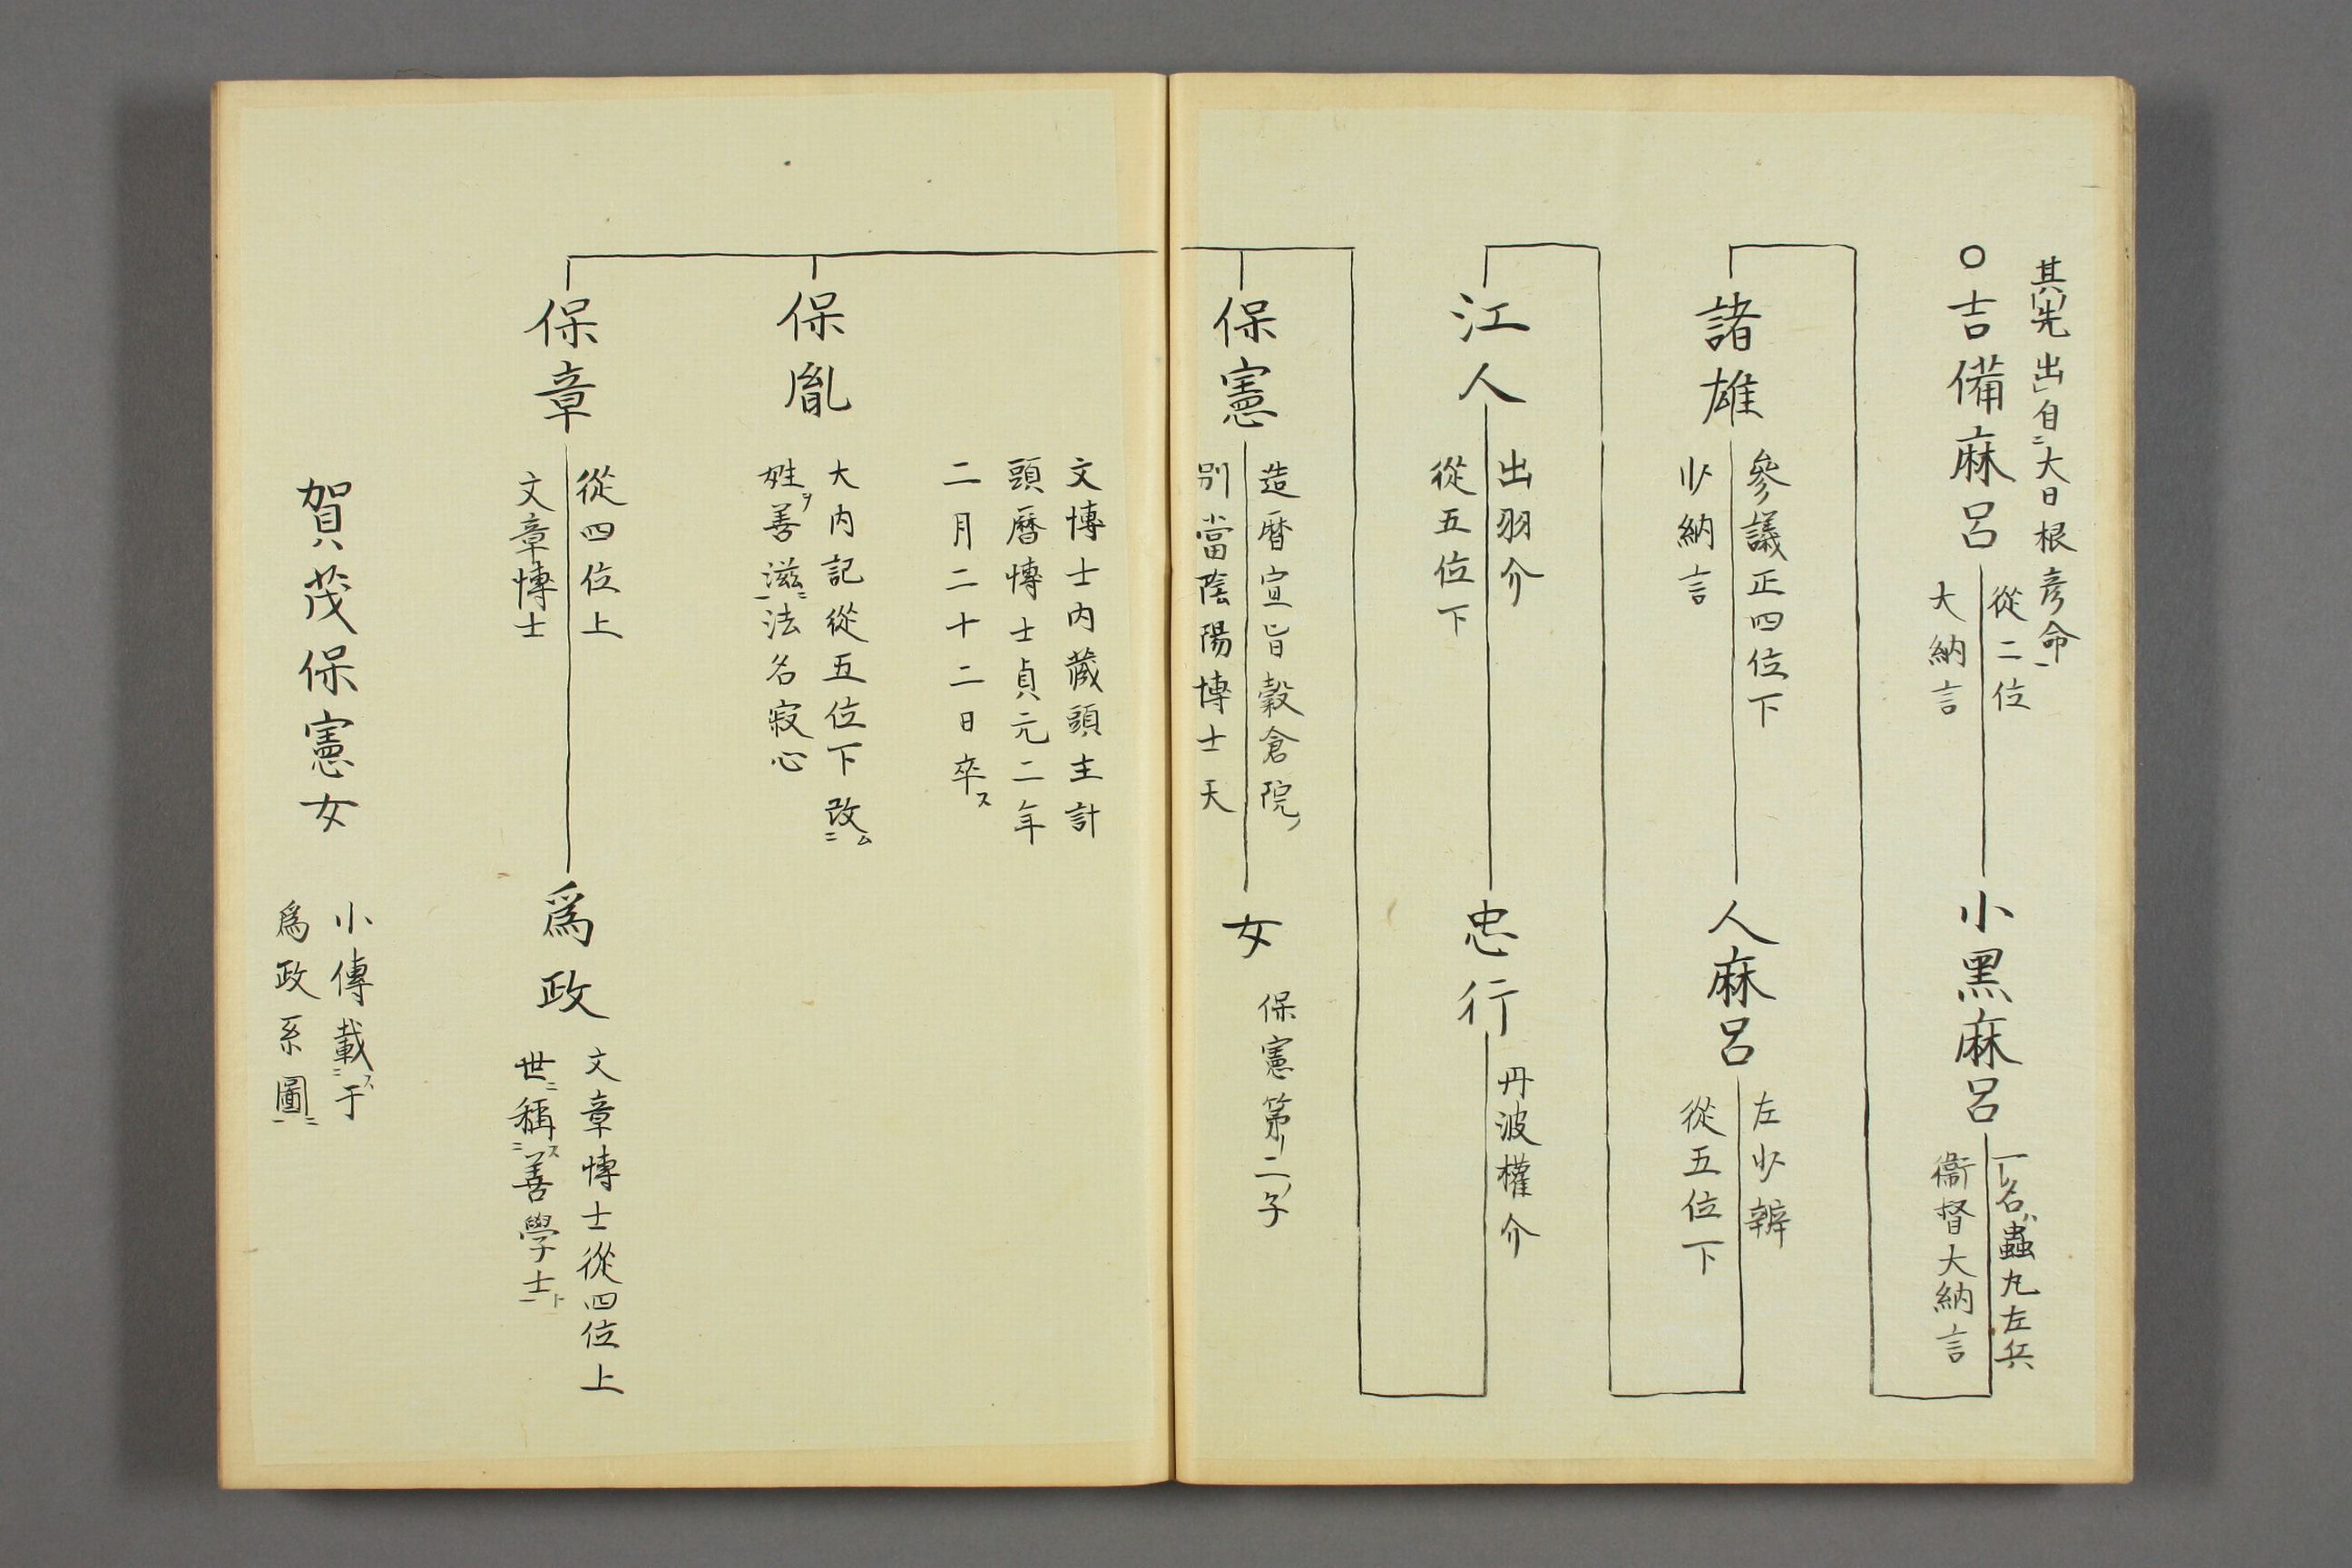 其ノ先出自二大日根彦命一
○吉備麻呂
從二位
大納言
小黒麻呂
一名ハ蟲丸左兵
衞督大納言
諸雄
參議正四位下
少納言
人麻呂
左少辨
從五位下
江人
出羽介
從五位下
忠行
丹波權介
保憲
造曆宣旨穀倉院ノ
別當陰陽博士天
女
保憲第二ノ子
文博士内藏頭主計
頭曆博士貞元二年
二月二十二日卒ス
保胤
大内記從五位下改ム二
姓ヲ善滋二一法名寂心
保章
從四位上
文章博士
爲政
文章博士從四位上
世ニ稱ス二善學士ト一
賀茂保憲女
小傳載ス二于
爲政系圖ニ一